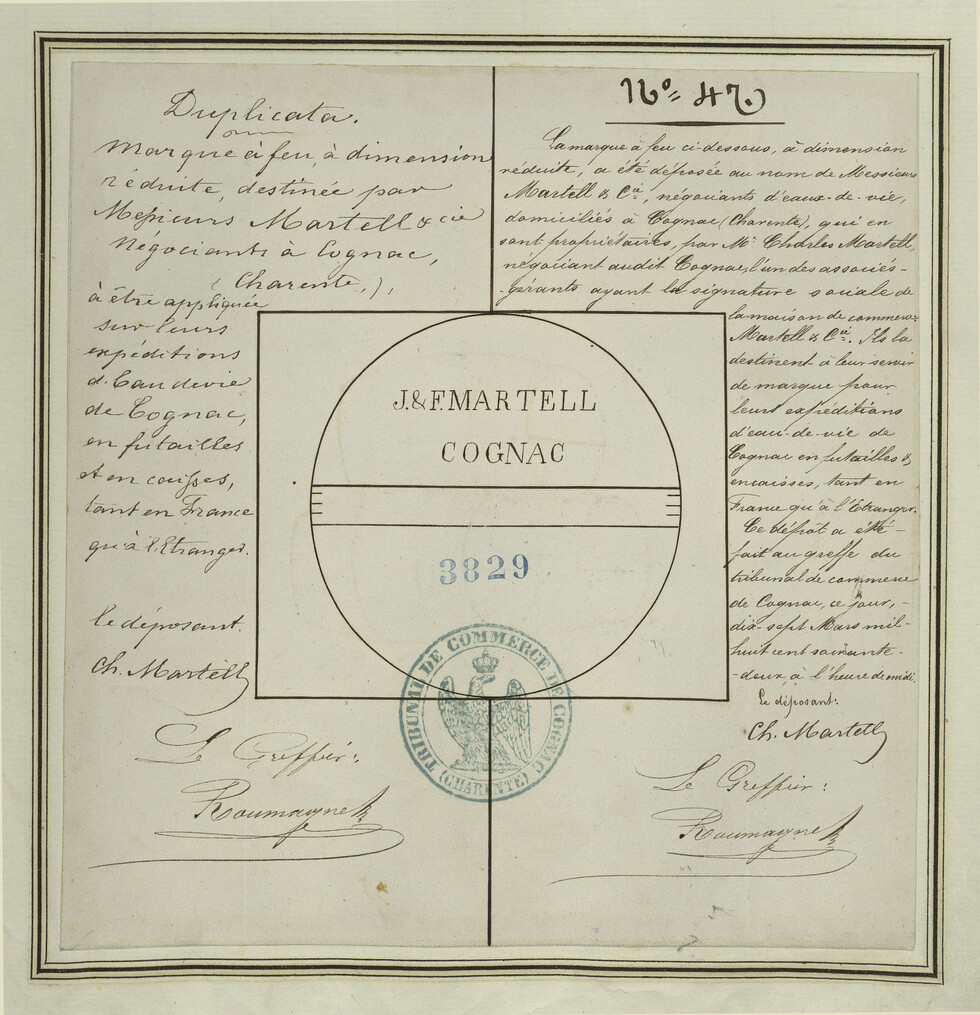 Duplicata.
Marque à feu, à dimension
réduite, destinée par
Messieurs Martell & cie
Négociants à Cognac,
(Charente,),
à être appliquée
sur leurs
expéditions
d'Eau de vie
de Cognac,
en futailles
et en caisses,
tant en France
qu'à l'Etranger.
le déposant.
Ch. Martell
Le Greffier:
Roumagne
No 47.
La marque à feu ci-dessous, à dimension
réduite, a été déposée au nom de Messieurs
Martell & Cie, négociants d'eaux-de-vie,
domiciliés à Cognac (Charente), qui en
sont propriétaires, par Mr Charles Martell,
négociant audit Cognac, l'un des associés-
-gérants ayant la signature sociale de
la maison de commerce
Martell & Cie. Ils la
destinent à leur servir
de marque pour
leurs expéditions
d'eau-de-vie de
Cognac en futailles &
en caisses, tant en
France qu'à l'Etranger.
Ce dépôt a été
fait au greffe du
tribunal de commerce
de Cognac, ce jour,
dix-sept Mars mil-
huit cent soixante-
-deux, à l'heure de midi.
Le déposant:
Ch. Martell
Le Greffier:
Roumagne
J.&F.MARTELL
COGNAC
3829
TRIBUNAL DE COMMERCE DE COGNAC
(CHARENTE)